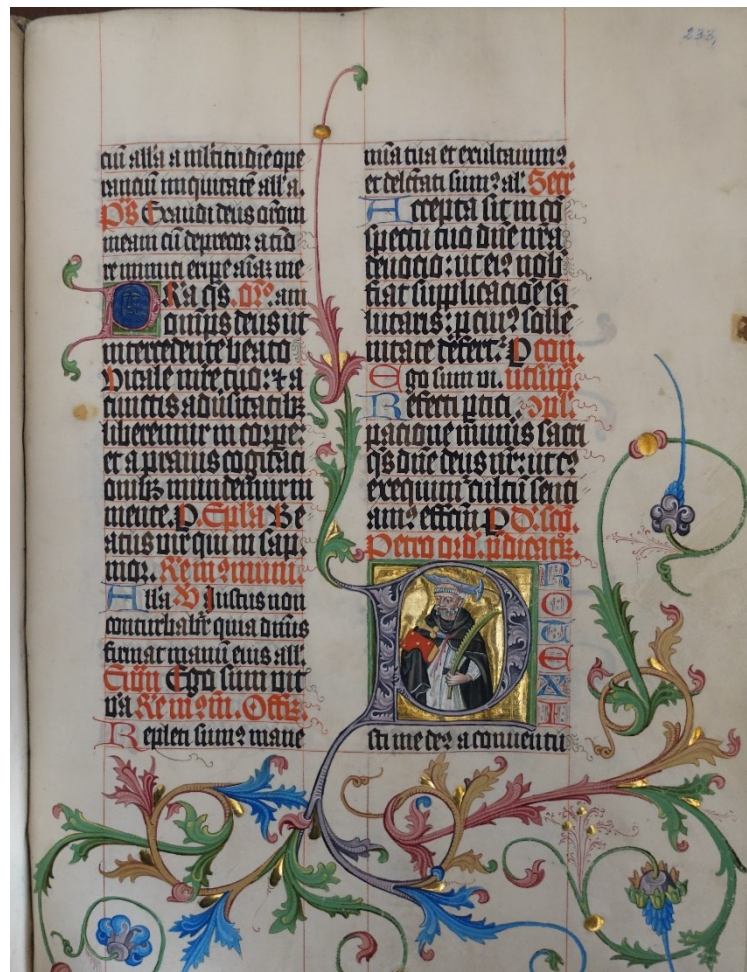 233,
ciu alla a ml'titudie ope
ranciu iniquitate all'a.
Ps Exaudi deus oronem
meam cu deprecor a timo
re inimici eripe aiaz me
P Ra qs. Or'o. am
onips deus ut
intercedente beato
Vitale mre tuo: et a
cunctis adusitatibz
liberemur in corpe:
et a prauis cogitaci
onibz mundemur in
mente. P. Epl'a Be
atus vir qui in sap
mor.
Alla V Iustus non
conturbabit quia dominus
firmat manum eius all.
Ego sum vit
va Offiz.
Repleti sum9 mane
mia tua et exultauim9
et delectati sum9 al. Secr
Accepta sit in con
spectu tuo dne nra
deuocio: ut eis nob
fiat supplicacoe sa
lutaris: p cui9 solle
nitate defert: P com.
Ego sum vi.
Refecti ptici. opl.
pacione muneris sacri
qs dne deus nr: ut cs
exequim cultu senci
am9 effectu P D. sco
Petro ord. pdicatz.
PROTEXI
sti me de9 a conuentu